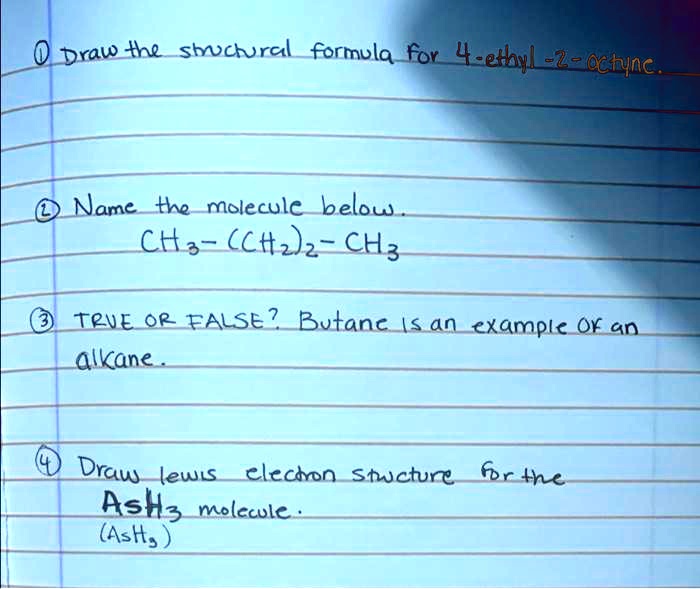 ① Draw the structural formula for 4-ethyl-2-octyne.
② Name the molecule below.
CH₃-(CH₂)₂-CH₃
③ TRUE OR FALSE? Butane is an example of an
alkane.
④ Draw lewis electron structure for the
AsH₃ molecule.
(AsH₃)